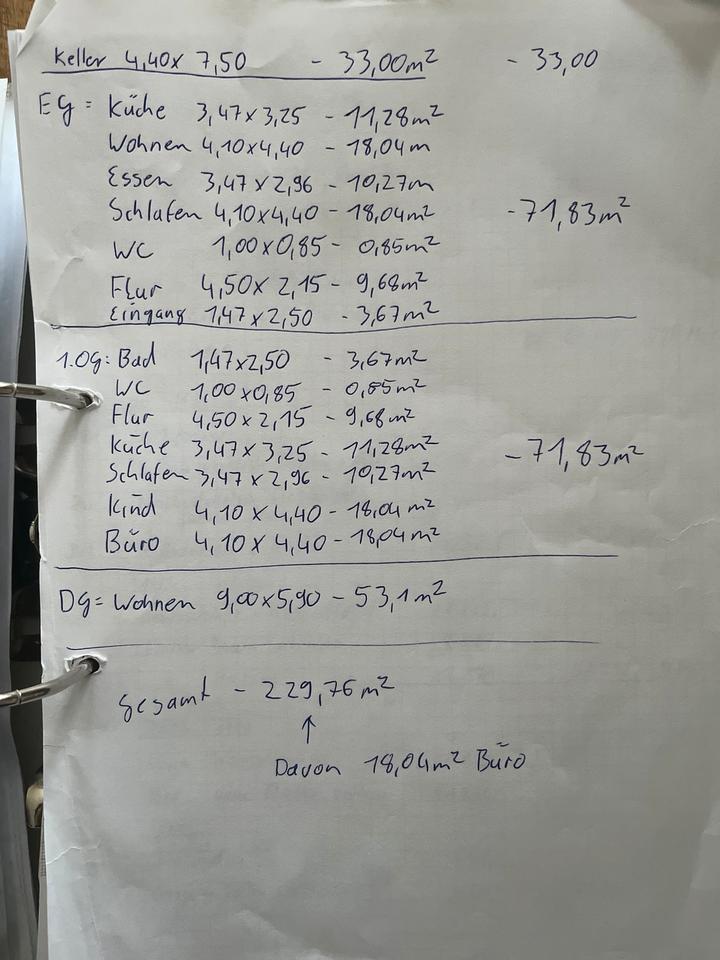 Keller 4,40x 7,50 - 33,00m² - 33,00
EG = Küche 3,47x3,25 - 11,28m²
Wohnen 4,10x4,40 - 18,04m
Essen 3,47x2,96 - 10,27m
Schlafen 4,10x4,40 - 18,04m² - 71,83m²
WC 1,00x0,85 - 0,85m²
Flur 4,50x 2,15 - 9,68m²
Eingang 1,47x2,50 - 3,67m²
1.OG: Bad 1,47x2,50 - 3,67m²
WC 1,00x0,85 - 0,85m²
Flur 4,50x2,15 - 9,68m²
Küche 3,47x3,25 - 11,28m² - 71,83m²
Schlafen 3,47x2,96 - 10,27m²
Kind 4,10 x 4,40 - 18,04m²
Büro 4,10 x 4,40 - 18,04m²
DG= Wohnen 9,00x5,90 - 53,1m²
gesamt - 229,76m²
↑
Davon 18,04m² Büro